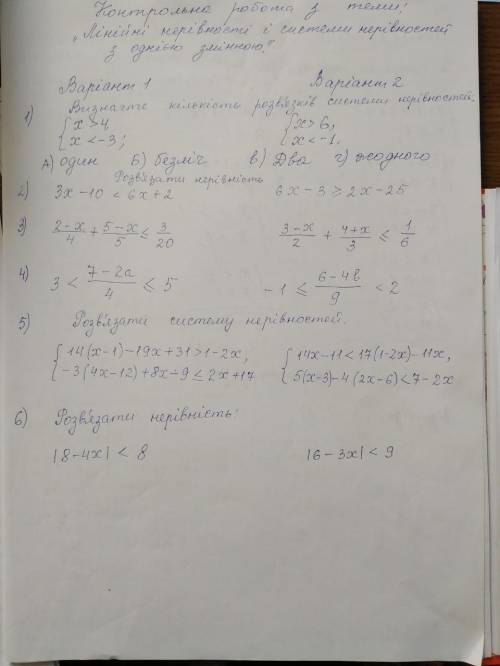 Контрольна робота з теми:
"Лінійні нерівності і системи нерівностей
з однією змінною."
Варіант 1 Варіант 2
1) Визначте кількість розв'язків системи нерівностей.
{x>4 {x>6,
{x<-3; {x<-1.
А) один Б) безліч В) Два Г) жодного
Розв'язати нерівність
2) 3x-10 < 6x+2 6x-3 ≥ 2x-25
3) (2-x)/4 + (5-x)/5 ≤ 3/20 (3-x)/2 + (4+x)/3 ≤ 1/6
4) 3 < (7-2a)/4 ≤ 5 -1 ≤ (6-4b)/9 < 2
5) Розв'язати систему нерівностей.
{14(x-1)-19x+31>1-2x, {14x-11<17(1-2x)-11x,
{-3(4x-12)+8x-9≤2x+17 {5(x-3)-4(2x-6)<7-2x
6) Розв'язати нерівність:
|8-4x| < 8 |6-3x| < 9